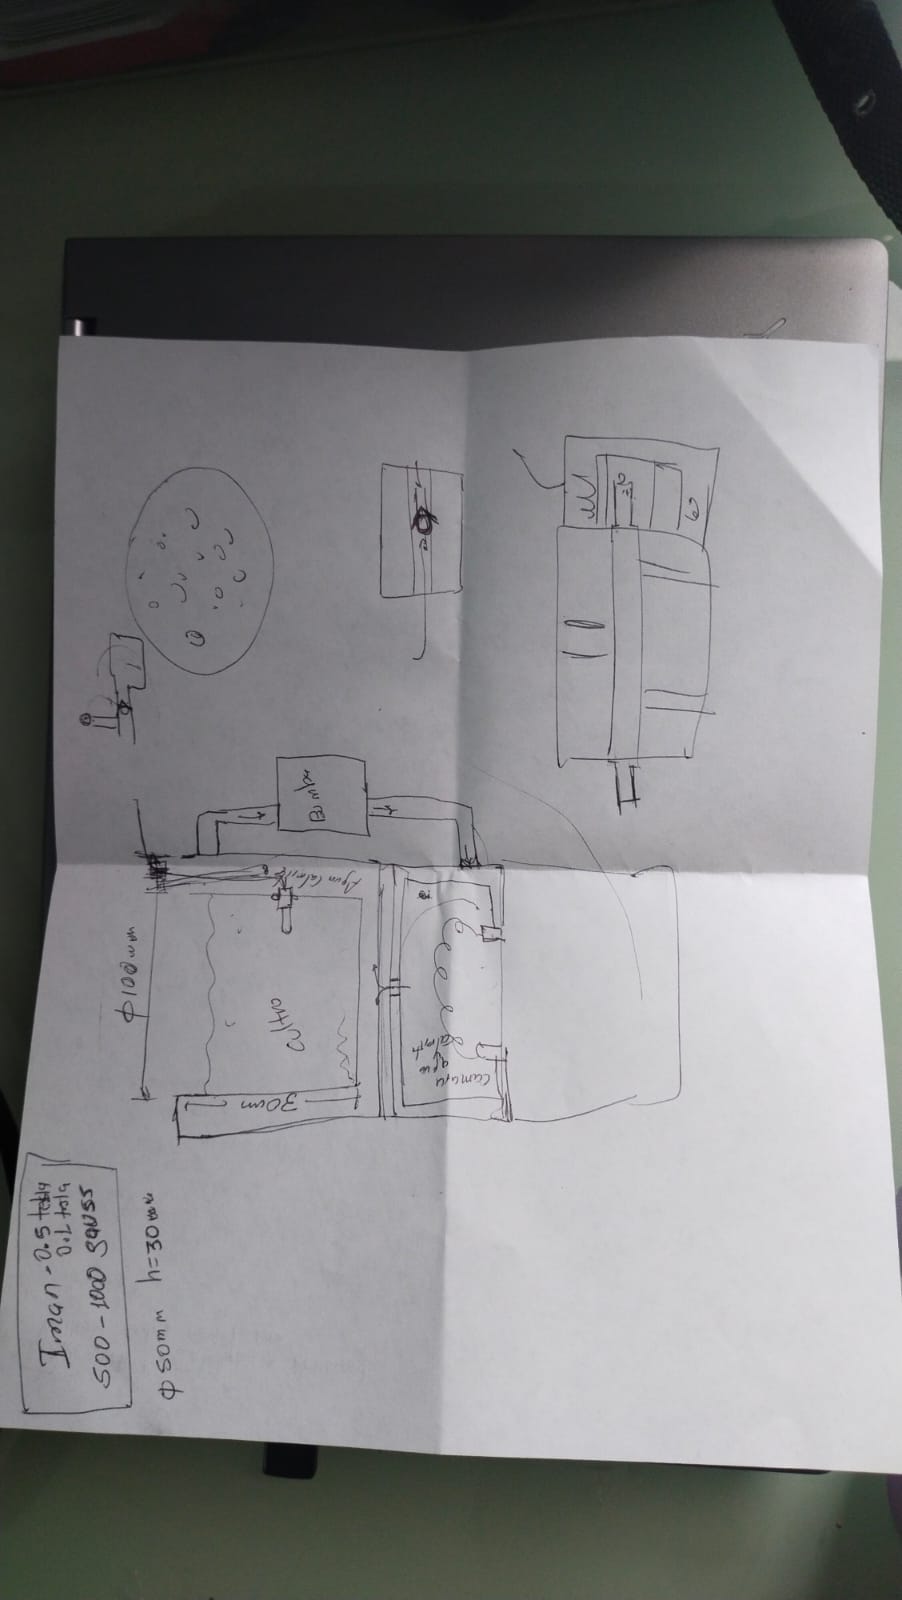 Iman - 0.5 tesla
0.1 tesla
500 - 1000 gauss
ϕ 50mm h=30mm
ϕ 100mm
30mm
cultivo
Agua caliente
Bomba
Camara
agua